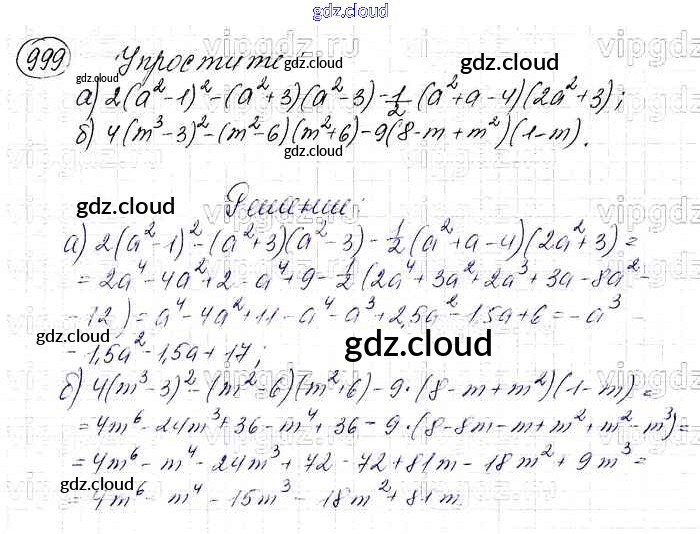 gdz.cloud
999 Упростите
gdz.cloud
а) 2(a²-1)²-(a²+3)(a²-3)-1/2(a²+a-4)(2a²+3);
б) 4(m³-3)²-(m²-6)(m²+6)-9(8-m+m²)(1-m).
gdz.cloud
gdz.cloud
Решение:
а) 2(a²-1)²-(a²+3)(a²-3)-1/2(a²+a-4)(2a²+3)=
=2a⁴-4a²+2-a⁴+9-1/2(2a⁴+3a²+2a³+3a-8a²-
gdz.cloud
-12)=a⁴-4a²+11-a⁴-a³+2,5a²-1,5a+6=-a³-
gdz.cloud
-1,5a²-1,5a+17;
gdz.cloud
б) 4(m³-3)²-(m²-6)(m²+6)-9·(8-m+m²)(1-m)=
=4m⁶-24m³+36-m⁴+36-9·(8-8m-m+m²+m²-m³)=
=4m⁶-m⁴-24m³+72-72+81m-18m²+9m³=
gdz.cloud
gdz.cloud
=4m⁶-m⁴-15m³-18m²+81m